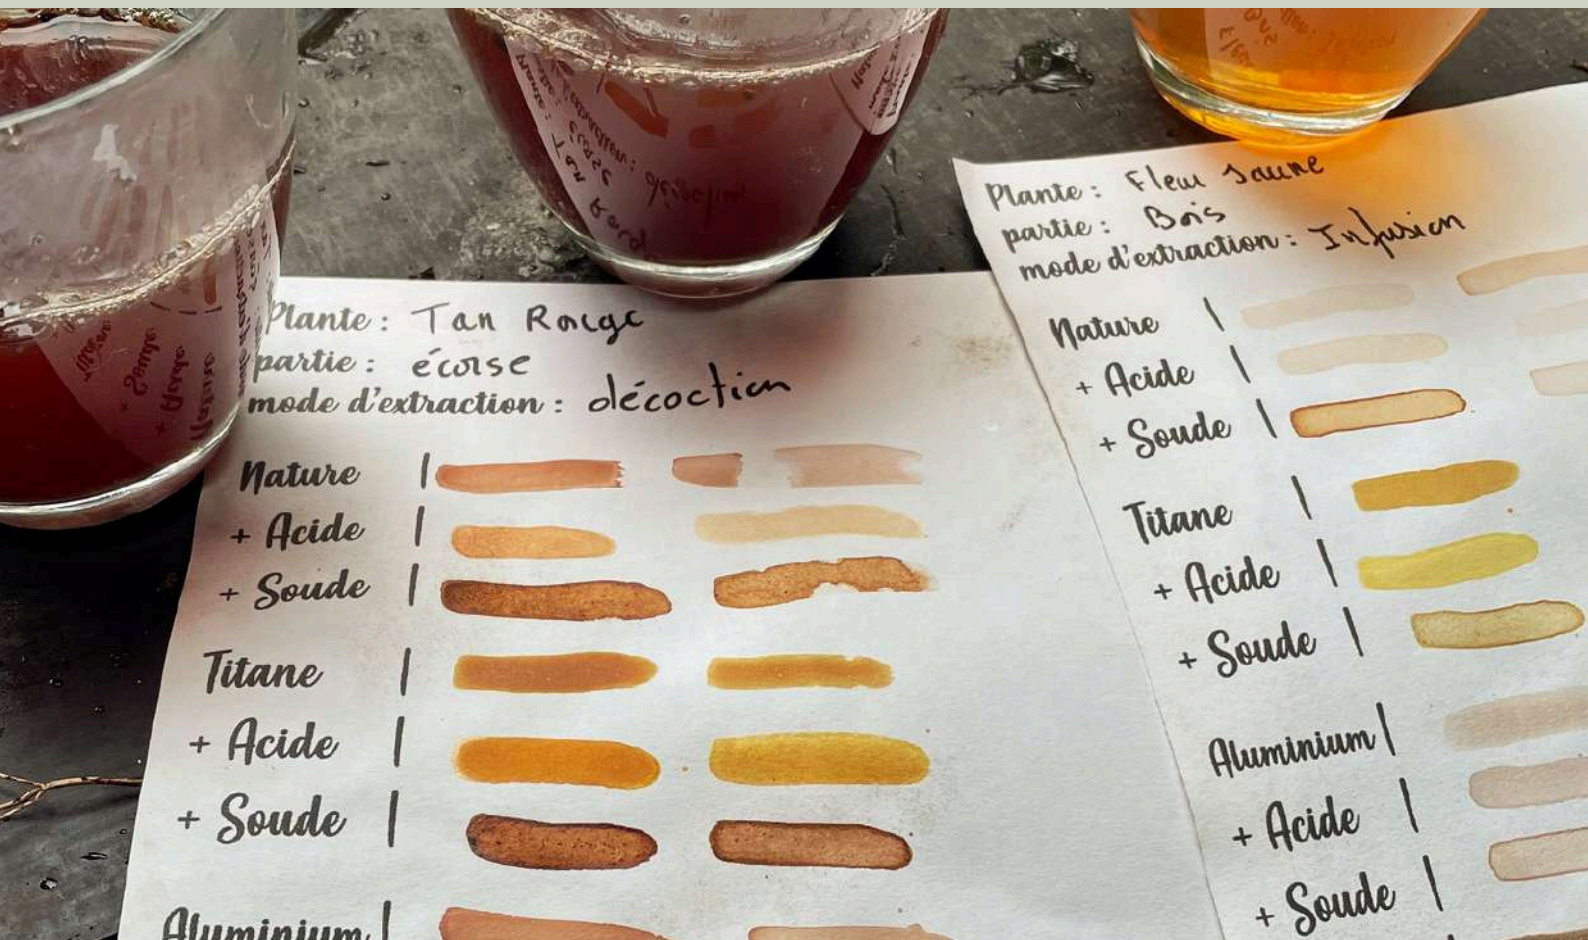 Plante : Tan Rouge
partie : écorse
mode d'extraction : décoction
Nature |
+ Acide |
+ Soude |
Titane |
+ Acide |
+ Soude |
Aluminium |
Plante : Fleur Jaune
partie : Bois
mode d'extraction : Infusion
Nature |
+ Acide |
+ Soude |
Titane |
+ Acide |
+ Soude |
Aluminium |
+ Acide |
+ Soude |